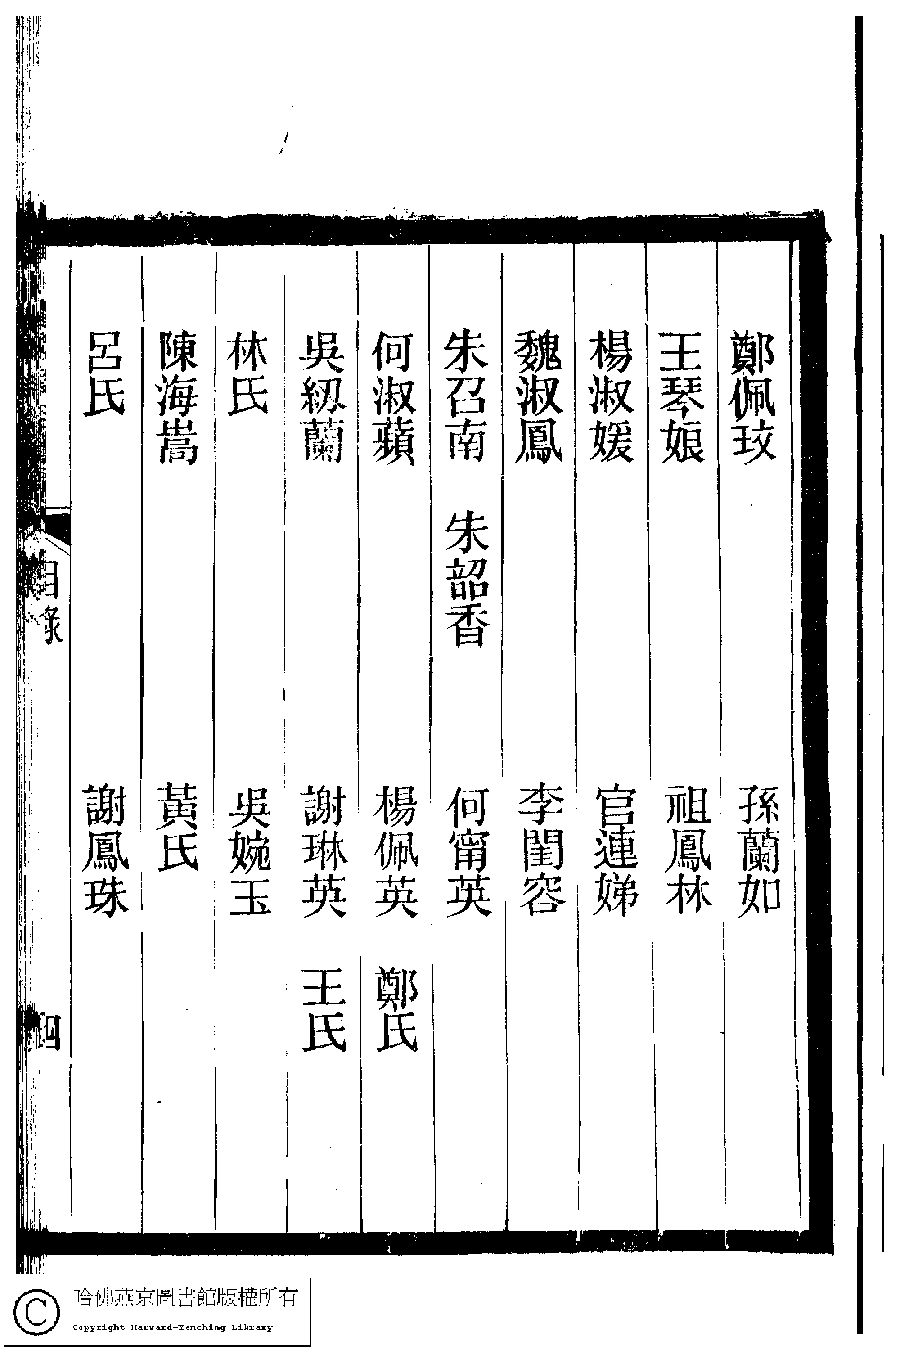 鄭佩玟　孫蘭如
王琴娘　祖鳳林
楊淑媛　官連娣
魏淑鳳　李閨容
朱召南　朱韶香　何甯英
何淑蘋　楊佩英　鄭氏
吳紉蘭　謝琳英　王氏
林氏　吳婉玉
陳海嵩　黃氏
呂氏　謝鳳珠
目錄　四
哈佛燕京圖書館版權所有
Copyright Harvard-Yenching Library